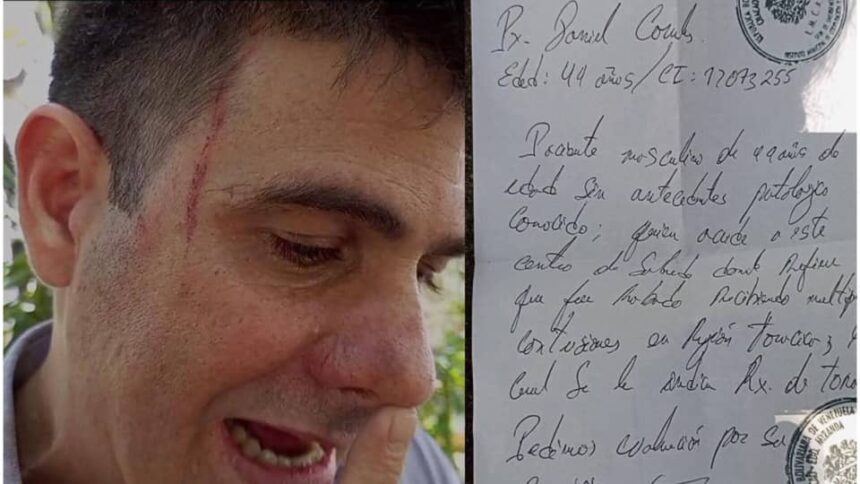 Px. Daniel
Edad: 44 años / CI: 17073255
Paciente masculino de 44 años de
edad sin antecedentes patologico
Conocido; quien acude a este
centro de Salud donde Refiere
que fue Recibiendo multip
contusiones en Región toracica,
Cual Se le indica Rx. de torax
Pedimos evaluación por Su
BOLIVARIANA DE VENEZUELA
MIRANDA